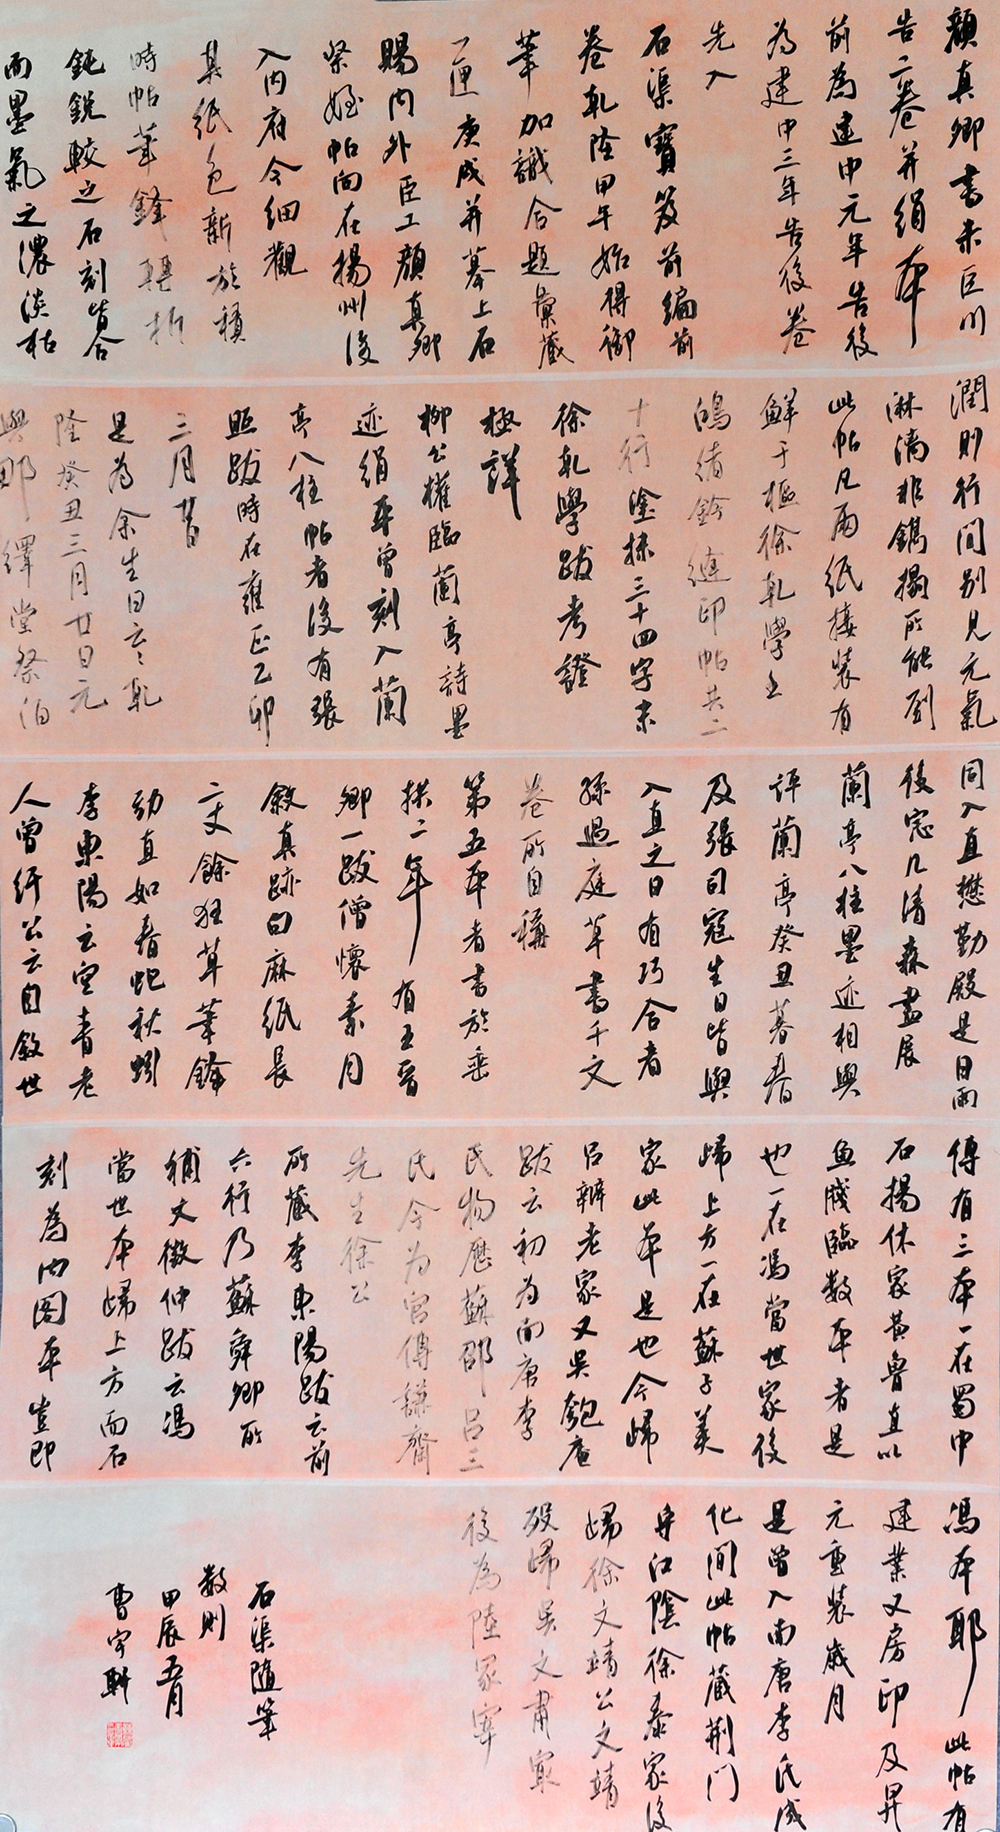 顏真卿書朱巨川
告二卷并絹本
前為建中元年告後
為建中三年告後卷
先入
石渠寶笈前編前
卷乾隆甲午始得御
筆加識合題彙藏
一匣庚戌并摹上石
賜內外臣工顏真卿
祭姪帖向在揚州後
入內府今細觀
其紙色新於積
時帖筆鋒轉折
鈍銳較之石刻皆合
而墨氣之濃淡枯
潤則行間別見元氣
淋漓非鐫搨所能到
此帖凡兩紙接裝有
鮮于樞徐乾學王
鴻緒鈐縫印帖共二
十行塗抹三十四字末
徐乾學跋考證
極詳
柳公權臨蘭亭詩墨
迹絹本曾刻入蘭
亭八柱帖者後有張
照跋時在雍正乙卯
三月昔
是為余生日云乾
隆癸丑三月廿日元
與那繹堂祭酒
同入直懋勤殿是日雨
後窓几清森盡展
蘭亭八柱墨迹相與
評蘭亭癸丑暮春
及張司寇生日皆與
入直之日有巧合者
孫過庭草書千文
卷所自稱
第五本者書於垂
拱二年有王晉
卿一跋僧懷素自
敘真跡白麻紙長
二丈餘狂草筆鋒
勁直如春蛇秋蚓
李東陽云空青老
人曾紆公云自敘世
傳有三本一在蜀中
石揚休家黃魯直以
魚牋臨數本者是
也一在馮當世家後
歸上方一在蘇子美
家此本是也今歸
呂辨老家又吳匏庵
跋云初為南唐李
氏物歷蘇邵呂三
氏今為宮傅謙齋
先生徐公
所藏李東陽跋云前
六行乃蘇舜卿所
補文徵仲跋云馮
當世本歸上方而石
刻為內閣本豈即
馮本耶此帖有
建業文房印及昇
元重裝歲月
是曾入南唐李氏成
化間此帖藏荊門
守江陰徐泰家後
歸徐文靖公文靖
歿歸吳文肅最
後為陸冢宰
石渠隨筆
數則
甲辰五月
曹宇軒